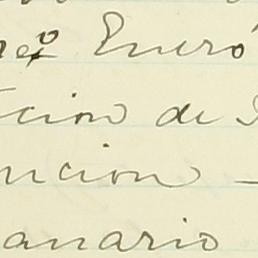 Enero
cion de
uncion —
anario